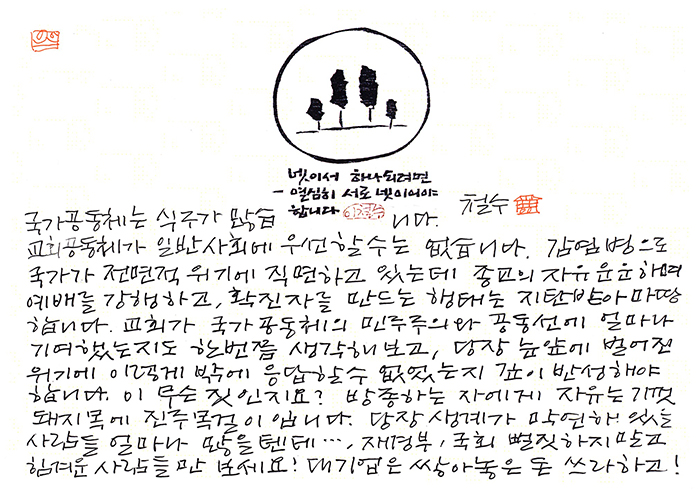 넷이서 하나 되려면
- 열심히 서로 넷이어야
합니다
철수
국가공동체는 식구가 많습니다.
교회공동체가 일반사회에 우선할 수는 없습니다. 감염병으로
국가가 전면적 위기에 직면하고 있는데 종교의 자유 운운하며
예배를 강행하고, 확진자를 만드는 행태는 지탄받아 마땅
합니다. 교회가 국가공동체의 민주주의와 공동선에 얼마나
기여했는지도 한번쯤 생각해보고, 당장 눈앞에 벌어진
위기에 이렇게 밖에 응답할 수 없었는지 깊이 반성해야
합니다. 이 무슨 짓인지요? 방종하는 자에게 자유는 기껏
돼지목에 진주목걸이입니다. 당장 생계가 막연해 있을
사람들 얼마나 많을텐데…, 재정부, 국회 뻘짓하지말고
힘겨운 사람들만 보세요! 대기업은 쌓아놓은 돈 쓰라하고!